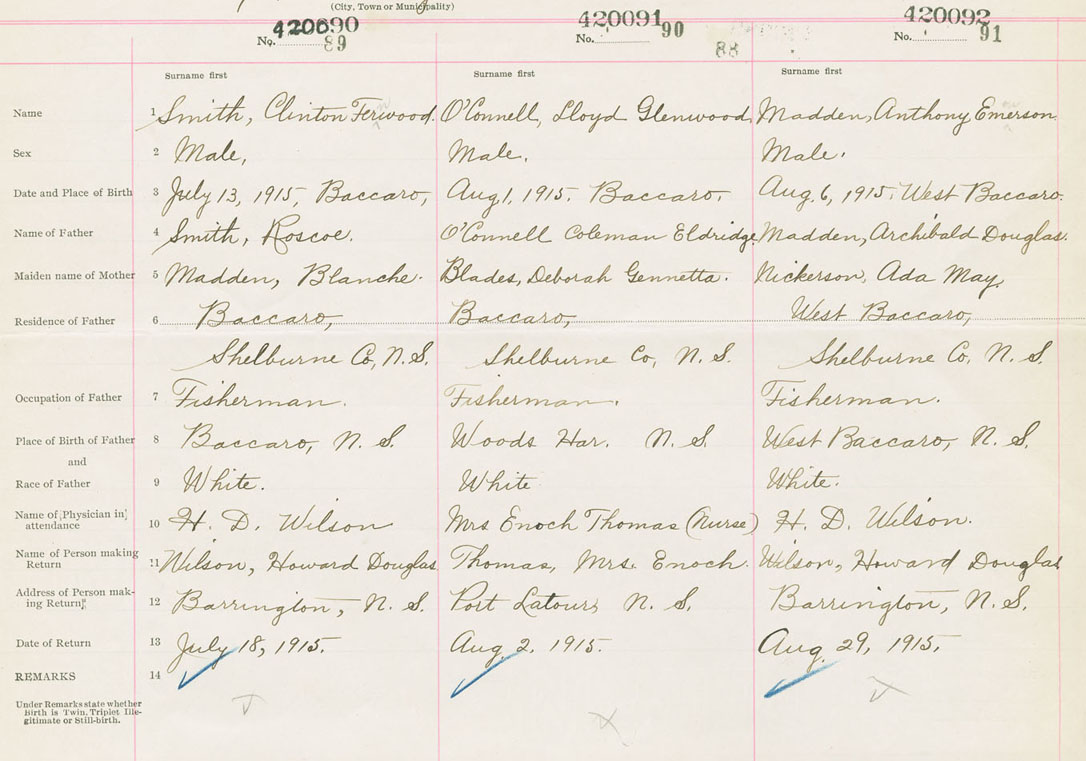 (City, Town or Municipality)
420090 420091 420092
No. 89 No. 90 88 No. 91
Surname first Surname first Surname first
Name 1 Smith, Clinton Ferwood. O'Connell, Lloyd Glenwood Madden, Anthony Emerson
Sex 2 Male, Male. Male.
Date and Place of Birth 3 July 13, 1915, Baccaro, Aug 1, 1915. Baccaro. Aug. 6, 1915. West Baccaro.
Name of Father 4 Smith, Roscoe. O'Connell Coleman Eldridge Madden, Archibald Douglas.
Maiden name of Mother 5 Madden, Blanche. Blades, Deborah Gennetta. Nickerson, Ada May,
Residence of Father 6 Baccaro, Baccaro, West Baccaro,
Shelburne Co, N.S. Shelburne Co, N. S. Shelburne Co, N. S.
Occupation of Father 7 Fisherman. Fisherman. Fisherman.
Place of Birth of Father 8 Baccaro, N. S. Woods Har. N. S. West Baccaro, N. S.
and
Race of Father 9 White. White White.
Name of [Physician in]
attendance 10 H. D. Wilson Mrs Enoch Thomas (Nurse) H. D. Wilson.
Name of Person making
Return 11 Wilson, Howard Douglas Thomas, Mrs. Enoch. Wilson, Howard Douglas
Address of Person mak-
ing Return 12 Barrington, N. S. Port Latour, N. S. Barrington, N. S.
Date of Return 13 July 18, 1915. Aug. 2, 1915. Aug. 29, 1915.
REMARKS 14
Under Remarks state whether
Birth is Twin, Triplet Ille-
gitimate or Still-birth.